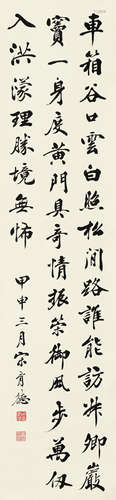 車箱谷口雲白照松間路誰能訪卅卿巖
竇一身度黃門具奇情振策御風步萬仞
入洪濛理勝境無怖
甲申三月宗育德